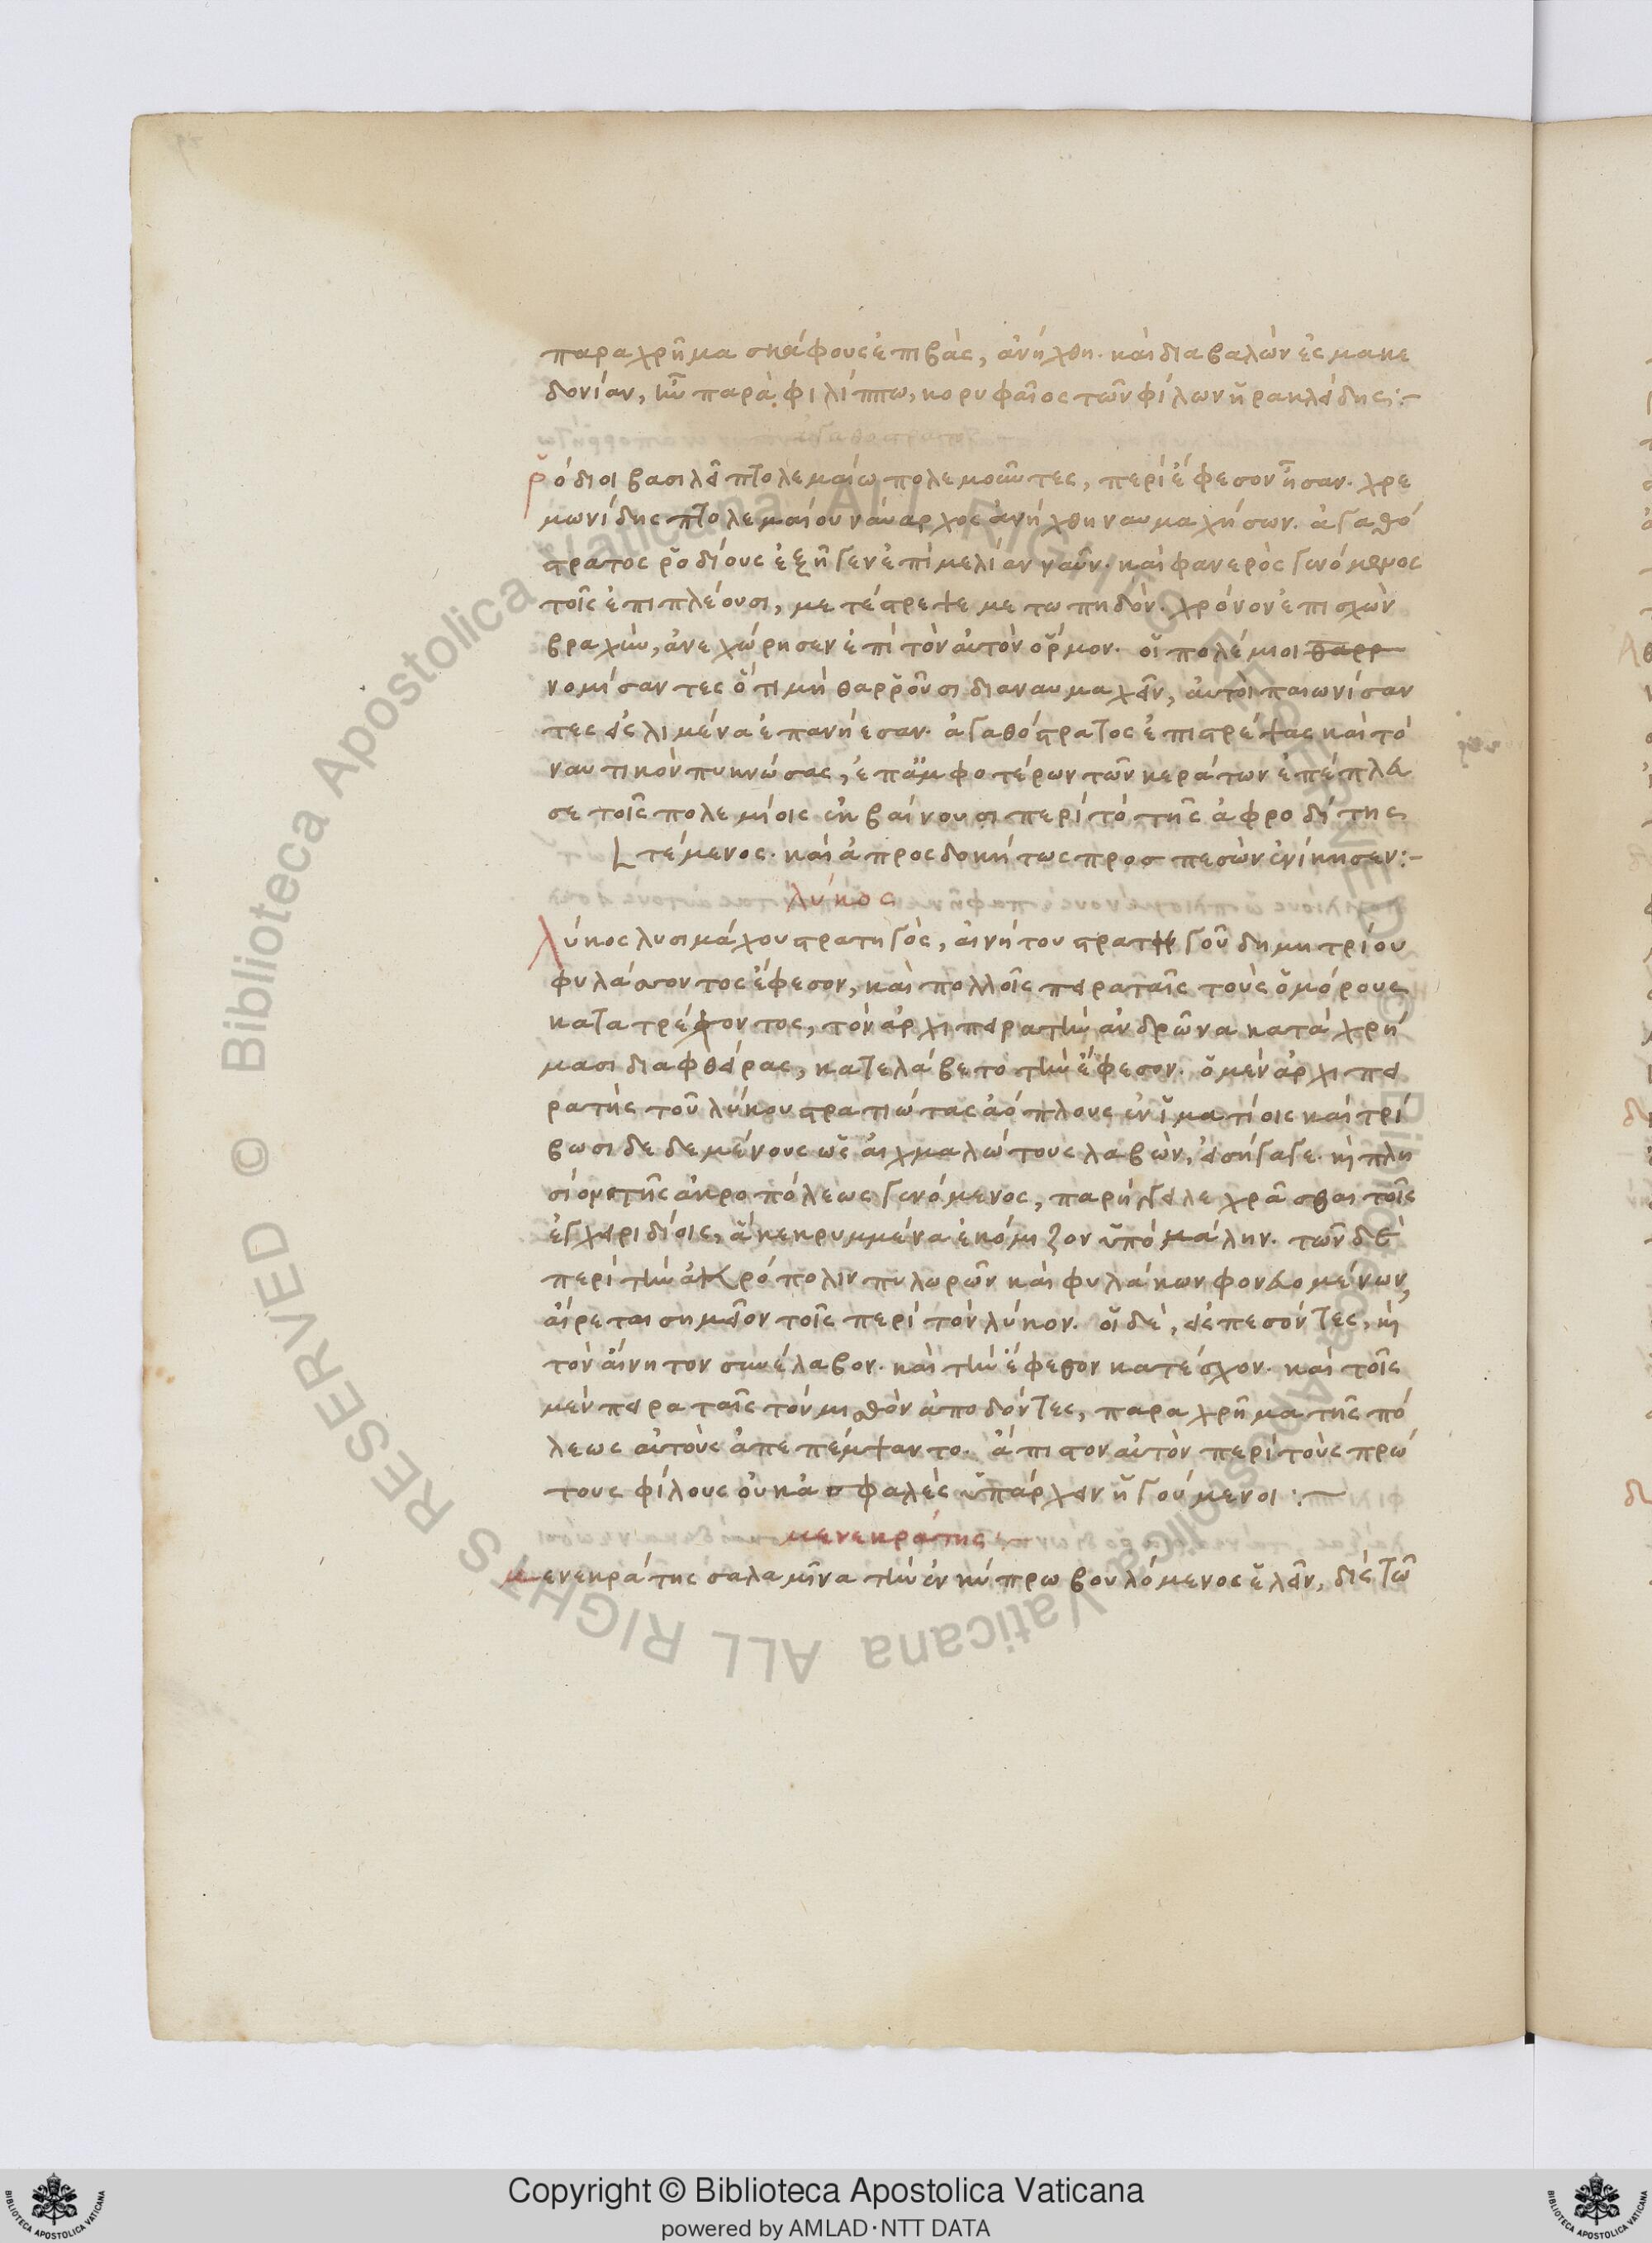 παραχρῆμα σκάφους ἐπιβὰς, ἀνήχθη. καὶ διαβαλὼν ἐς μακε
δονίαν, ἦν παρὰ φιλίππω, κορυφαῖος τῶν φίλων ἡρακλείδης:-
ῥόδιοι βασιλεῖ πτολεμαίω πολεμοῦντες, περὶ ἔφεσον ἦσαν. χρε
μωνίδης πτολεμαίου ναύαρχος ἀνήχθη ναυμαχήσων. ἀγαθό
στρατος ῥοδίους ἐξῆγεν ἐπὶ μελίαν ναῦν. καὶ φανερὸς γενόμενος
τοῖς ἐπιπλέουσι, μετέστρεψε μετωπηδὸν. χρόνον ἐπισχὼν
βραχὺν, ἀνεχώρησεν ἐπὶ τὸν αὐτὸν ὅρμον. οἱ πολέμιοι θαρρ
νομίσαντες ὅτι μὴ θαρροῦσι διαναυμαχεῖν, αὐτοὶ παιωνίσαν
τες εἰς λιμένα ἐπανήεσαν. ἀγαθόστρατος ἐπιστρέψας καὶ τὸ
ναυτικὸν πυκνώσας, ἐπ' ἀμφοτέρων τῶν κεράτων ἐπέπλευ
σε τοῖς πολεμίοις ἐκβαίνουσι περὶ τὸ τῆς ἀφροδίτης
τέμενος. καὶ ἀπροσδοκήτως προσπεσὼν ἐνίκησεν:-
λύκος
λύκος λυσιμάχου στρατηγὸς, αἰνήτου στρατηγοῦ δημητρίου
φυλάσσοντος ἔφεσον, καὶ πολλοῖς πειραταῖς τοὺς ὁμόρους
κατατρέχοντος, τὸν ἀρχιπειρατὴν ἀνδρῶνα κατὰ χρή
μασι διαφθείρας, κατελάβετο τὴν ἔφεσον. ὁ μὲν ἀρχιπει
ρατὴς τοῦ λύκου στρατιώτας ἀόπλους ἐν ἱματίοις καὶ τρί
βωσι δεδεμένους ὡς αἰχμαλώτους λαβὼν, εἰσήγαγε. καὶ πλη
σίον τῆς ἀκροπόλεως γενόμενος, παρήγγειλε χρᾶσθαι τοῖς
ἐγχειριδίοις, ἃ κεκρυμμένα ἐκόμιζον ὑπὸ μάλην. τῶν δὲ
περὶ τὴν ἀκρόπολιν πυλωρῶν καὶ φυλάκων φονευομένων,
αἴρεται σημεῖον τοῖς περὶ τὸν λύκον. οἱ δὲ, εἰσπεσόντες, καὶ
τὸν αἴνητον συνέλαβον. καὶ τὴν ἔφεσον κατέσχον. καὶ τοῖς
μὲν πειραταῖς τὸν μισθὸν ἀποδόντες, παραχρῆμα τῆς πό
λεως αὐτοὺς ἀπεπέμψαντο. ἄπιστον αὐτὸν περὶ τοὺς πρώ
τους φίλους οὐκ ἀσφαλὲς ὑπάρχειν ἡγούμενοι:-
μενεκράτης:-
μενεκράτης σαλαμῖνα τὴν ἐν κύπρω βουλόμενος ἑλεῖν, δὶς τῶ
Biblioteca Apostolica Vaticana ALL RIGHTS RESERVED ©
Copyright © Biblioteca Apostolica Vaticana
powered by AMLAD·NTT DATA